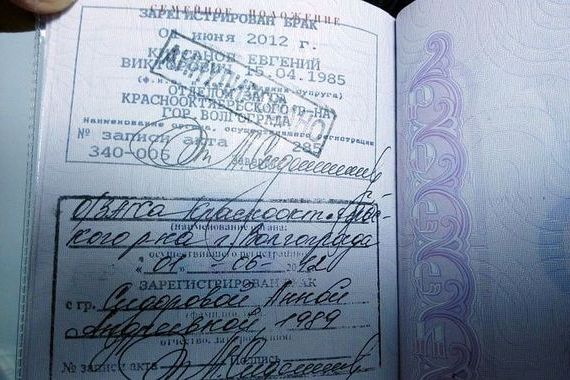 СЕМЕЙНОЕ ПОЛОЖЕНИЕ
ЗАРЕГИСТРИРОВАН БРАК
01 ИЮНЯ 2012 Г.
ЕВГЕНИЙ
15.04.1985
ОТДЕЛОМ
КРАСНООКТЯБРЬСКОГО Р-НА
ГОР. ВОЛГОГРАДА
Наименование органа, осуществившего регистрацию
№ записи акта 285
340-006
О/ЗАГСа Красноокт.
кого р-на г. Волгограда
(наименование органа,
осуществившего регистрацию)
"01" 06 2012
ЗАРЕГИСТРИРОВАН БРАК
с гр. Сидоровой Анной
Андреевной, 1989
отчество, дата рождения)
№ записи акта Подпись